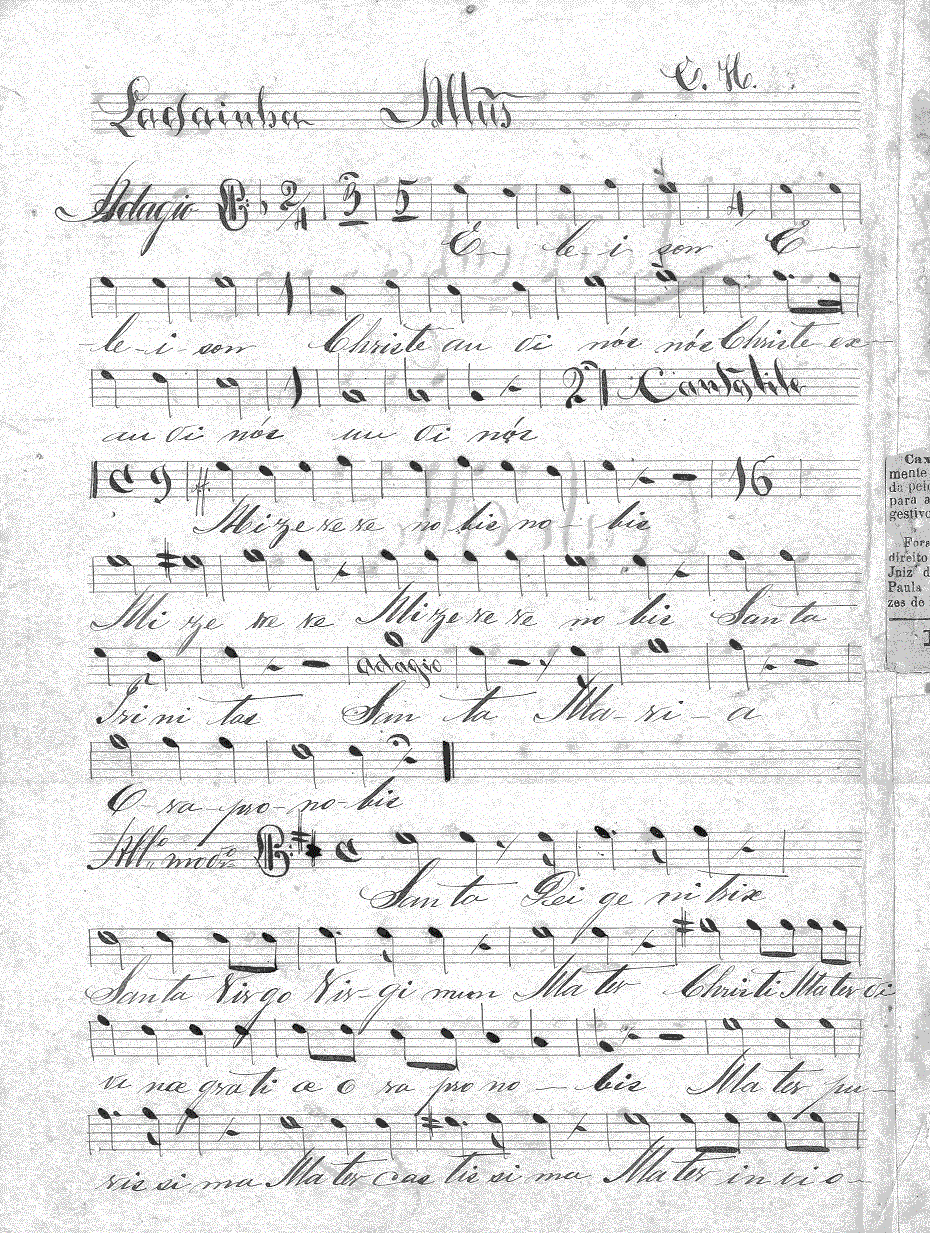 C. H.
Ladainha Altus
Adagio 2/4 3 5 4
E- le-i son E-
-le-i-son Christe au di nós nós Christe ex-
2 Cantabile
au di nós au di nós
C 9 16
Mizerere no-bis no-bis
Mi ze re re Mizerere no bis Santa
adagio
Tri ni tas San ta Ma-ri-a
O-ra pro-no-bis
All.º mod.º C
Santa Dei ge nitrix
Santa Virgo Vir-gi num Mater Christi Mater di
vi næ grati æ o ra pro no-bis Mater pu-
ris si ma Mater cas tis si ma Mater in vi o-
Cax
mente
da pelo
para a
gestivo
Fora
direito
Juiz d
Paula
zes de